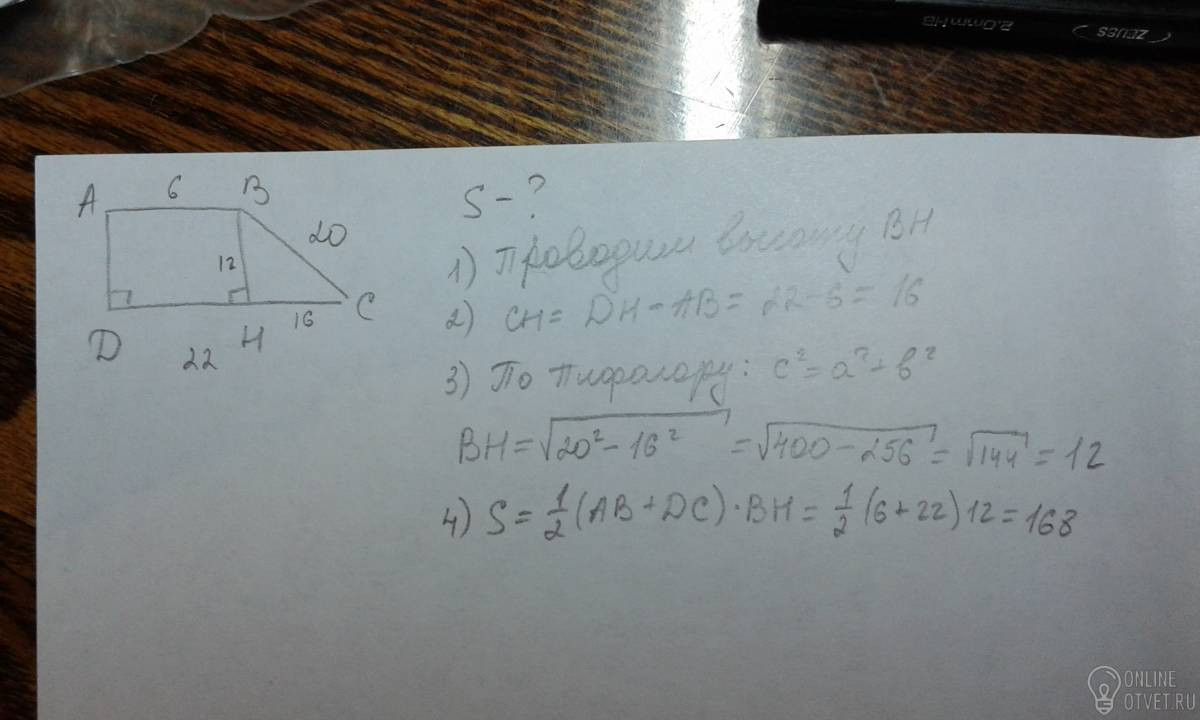 2.0mm HB
ZEUSS
A 6 B
20
12
16
D 22 H C
S - ?
1) Проводим высоту BH
2) CH = DH - AB = 22 - 6 = 16
3) По Пифагору: c² = a² + b²
BH = √20² - 16² = √400 - 256 = √144 = 12
4) S = 1/2 (AB + DC) · BH = 1/2 (6 + 22) 12 = 168
ONLINE
OTVET.RU